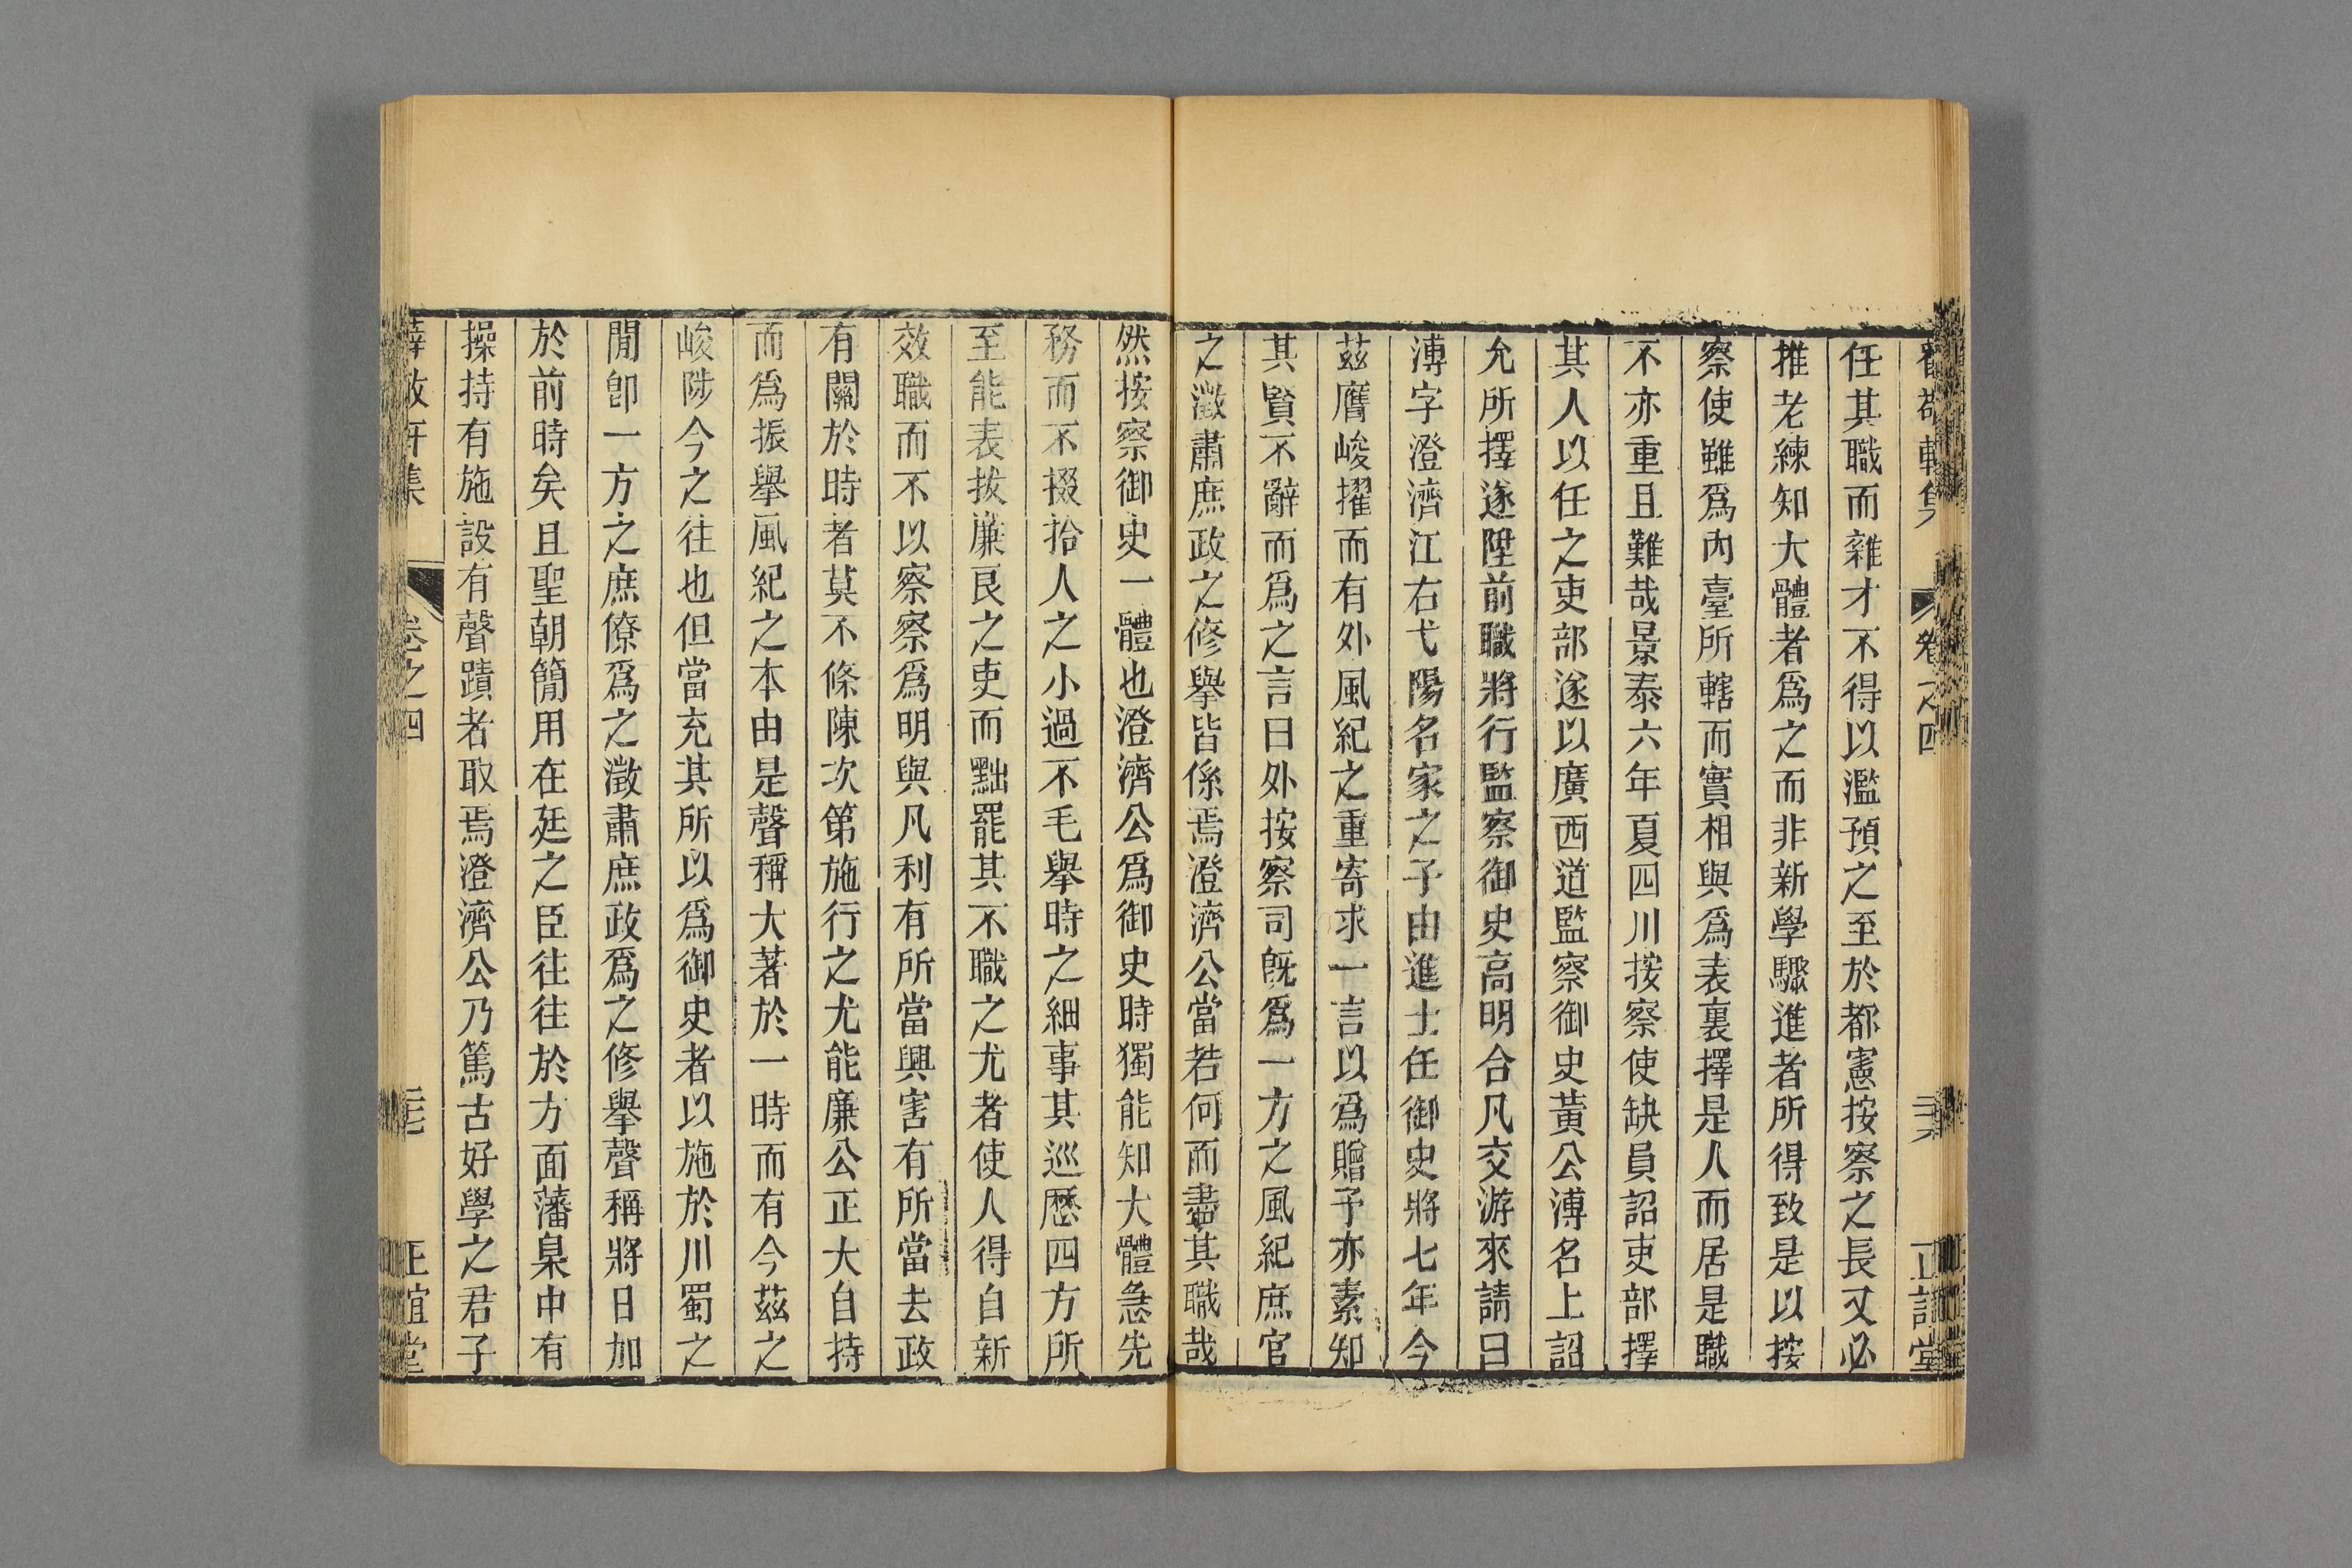 薛敬軒集 卷之四 三六 正誼堂
任其職而雜才不得以濫預之至於都憲按察之長又必
推老練知大體者爲之而非新學驟進者所得致是以按
察使雖爲內臺所轄而實相與爲表裏擇是人而居是職
不亦重且難哉景泰六年夏四川按察使缺員詔吏部擇
其人以任之吏部遂以廣西道監察御史黃公溥名上詔
允所擇遂陞前職將行監察御史高明合凡交游來請曰
溥字澄濟江右弋陽名家之子由進士任御史將七年今
茲膺峻擢而有外風紀之重寄求一言以爲贈予亦素知
其賢不辭而爲之言曰外按察司既爲一方之風紀庶官
之澂肅庶政之修舉皆係焉澄濟公當若何而盡其職哉
然按察御史一體也澄濟公爲御史時獨能知大體急先
務而不掇拾人之小過不毛舉時之細事其巡歷四方所
至能表拔廉良之吏而黜罷其不職之尤者使人得自新
效職而不以察察爲明與凡利有所當興害有所當去政
有關於時者莫不條陳次第施行之尤能廉公正大自持
而爲振舉風紀之本由是聲稱大著於一時而有今茲之
峻陟今之往也但當充其所以爲御史者以施於川蜀之
閒卽一方之庶僚爲之澂肅庶政爲之修舉聲稱將日加
於前時矣且聖朝簡用在廷之臣往往於方面藩臬中有
操持有施設有聲蹟者取焉澄濟公乃篤古好學之君子
薛敬軒集 卷之四 三七 正誼堂